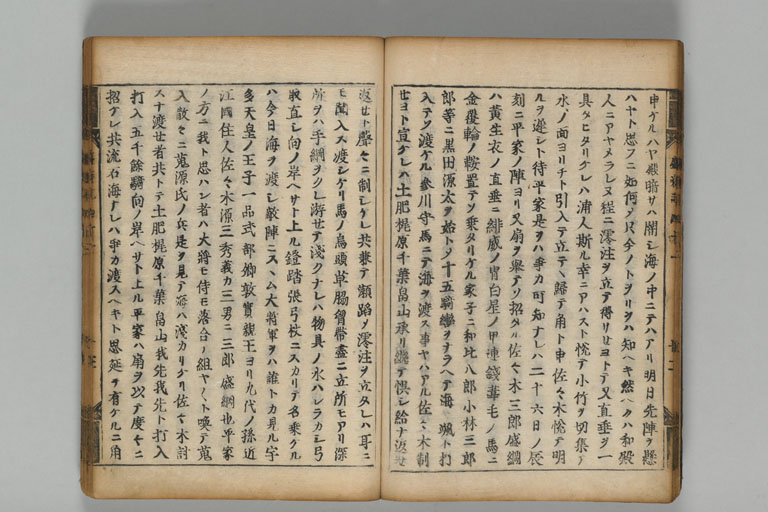 申ケルハヤ殿暗サハ闇シ海ノ中ニテハアリ明日先陣ヲ懸
ハヤト思フニ如何ヽ只今ノトヲリヲハ知ヘキ然ヘクハ和殿
人ニアヤメラレヌ程ニ澪注ヲ立テ得サセヨトテ又直垂ヲ一
具タヒタリケレハ浦人斯ル幸ニアハスト悦テ小竹ヲ切集テ
水ノ面ヨリチト引入テ立テヽ歸テ角ト申佐々木悦テ明
ルヲ遅シト待平家是ヲハ爭カ可知ナレハ二十六日ノ辰
刻ニ平家ノ陣ヨリ又扇ヲ擧テソ招タル佐々木三郎盛綱
ハ黄生衣ノ直垂ニ緋威ノ冑白星ノ甲連錢葦毛ノ馬ニ
金覆輪ノ鞍置テソ乗タリケル家子ニ和比八郎小林三郎
郎等ニ黒田源太ヲ始トメ十五騎轡ヲナラヘテ海ヘ颯ト打
入テソ渡ケル參川守馬ニテ海ヲ渡ス事ヤハアル佐々木制
セヨト宣ケレハ土肥梶原千葉畠山承リ繼テ惧シ給ナ返セ
返セト聲々ニ制シケレ共兼テ瀬踏メ澪注ヲ立タレハ耳ニ
モ聞入ス渡シケリ馬ノ烏頭草脇胷帶盡ニ立所モアリ深
所ヲハ手綱ヲクレ游セテ淺クナレハ物具ノ水ハシラカシ弓
取直シ向ノ岸ヘサト上ル鐙踏張弓杖ニスカリテ名乗ケル
ハ今日海ヲ渡シ敵陣ニスヽム大將軍ヲハ誰トカ見ル宇
多天皇ノ王子一品式部卿敦實親王ヨリ九代ノ孫近
江國住人佐々木源三秀義カ三男ニ三郎盛綱也平家
ノ方ニ我ト思ハン者ハ大將モ侍モ落合ノ組ヤ〱ト喚テ蒐
入散々ニ蒐源氏ノ兵是ヲ見テ海ハ淺カリケリ佐々木討
スナ渡セ者共トテ土肥梶原千葉畠山我先我先ト打入
打入五千餘騎向ノ岸ヘサト上ル平家ハ扇ヲ以テ度々ニ
招ケレ共流石海ナレハ爭カ渡スヘキト思延テ有ケルニ角